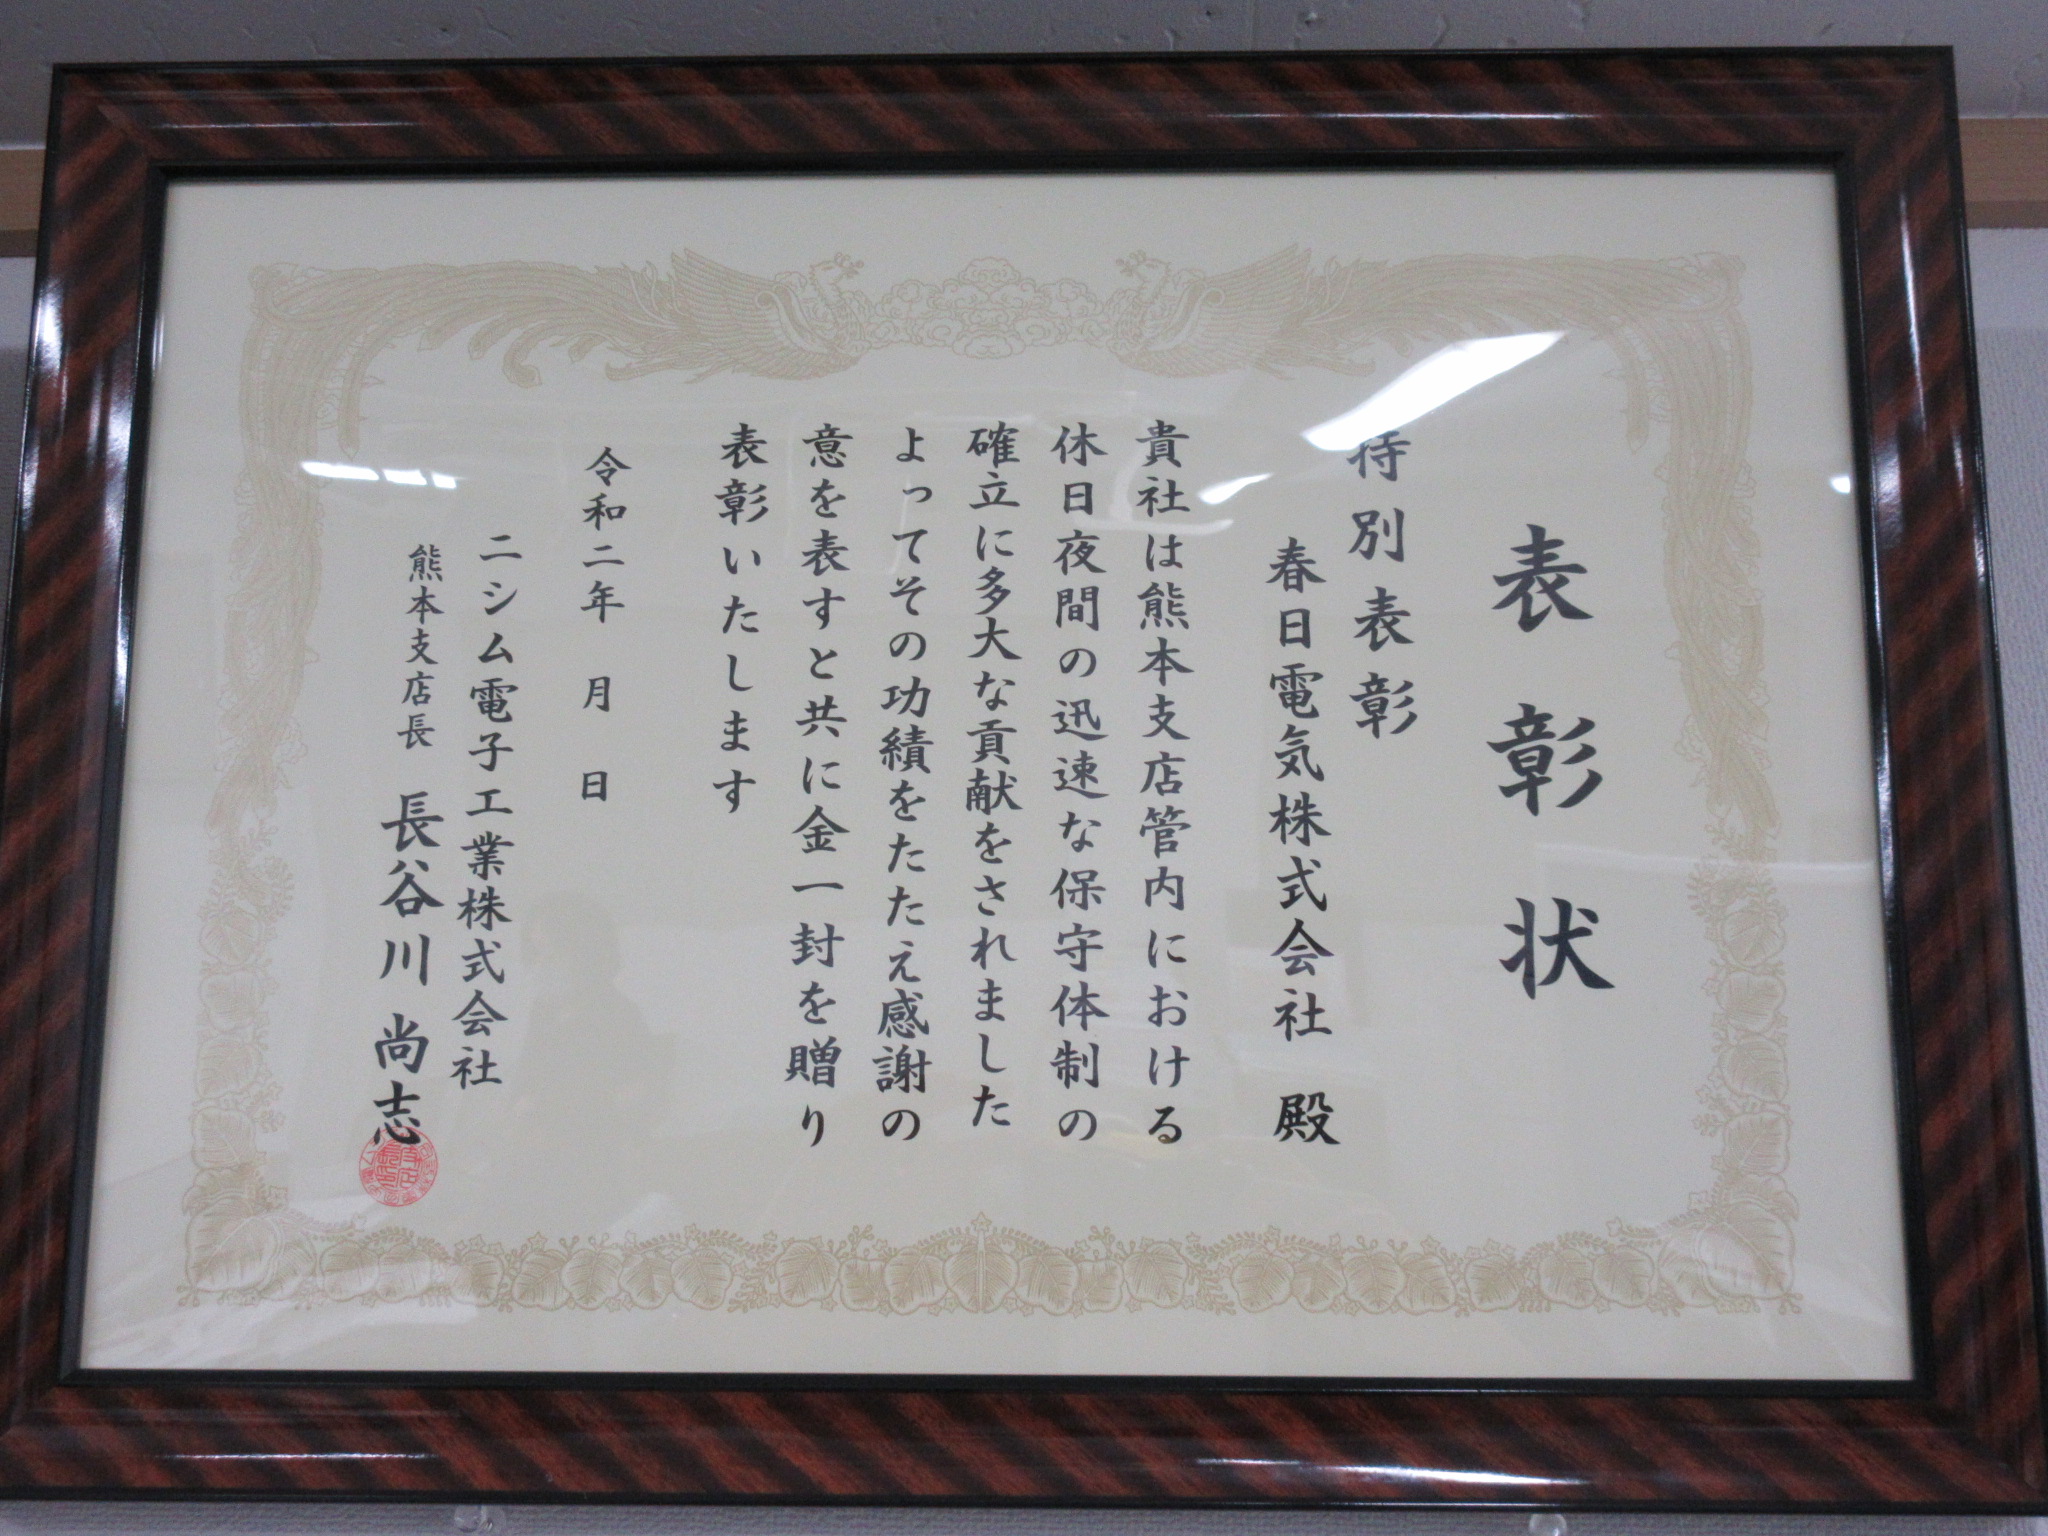 表彰状
特別表彰
春日電気株式会社 殿
貴社は熊本支店管内における
休日夜間の迅速な保守体制の
確立に多大な貢献をされました
よってその功績をたたえ感謝の
意を表すと共に金一封を贈り
表彰いたします
令和二年 月 日
ニシム電子工業株式会社
熊本支店長 長谷川 尚志